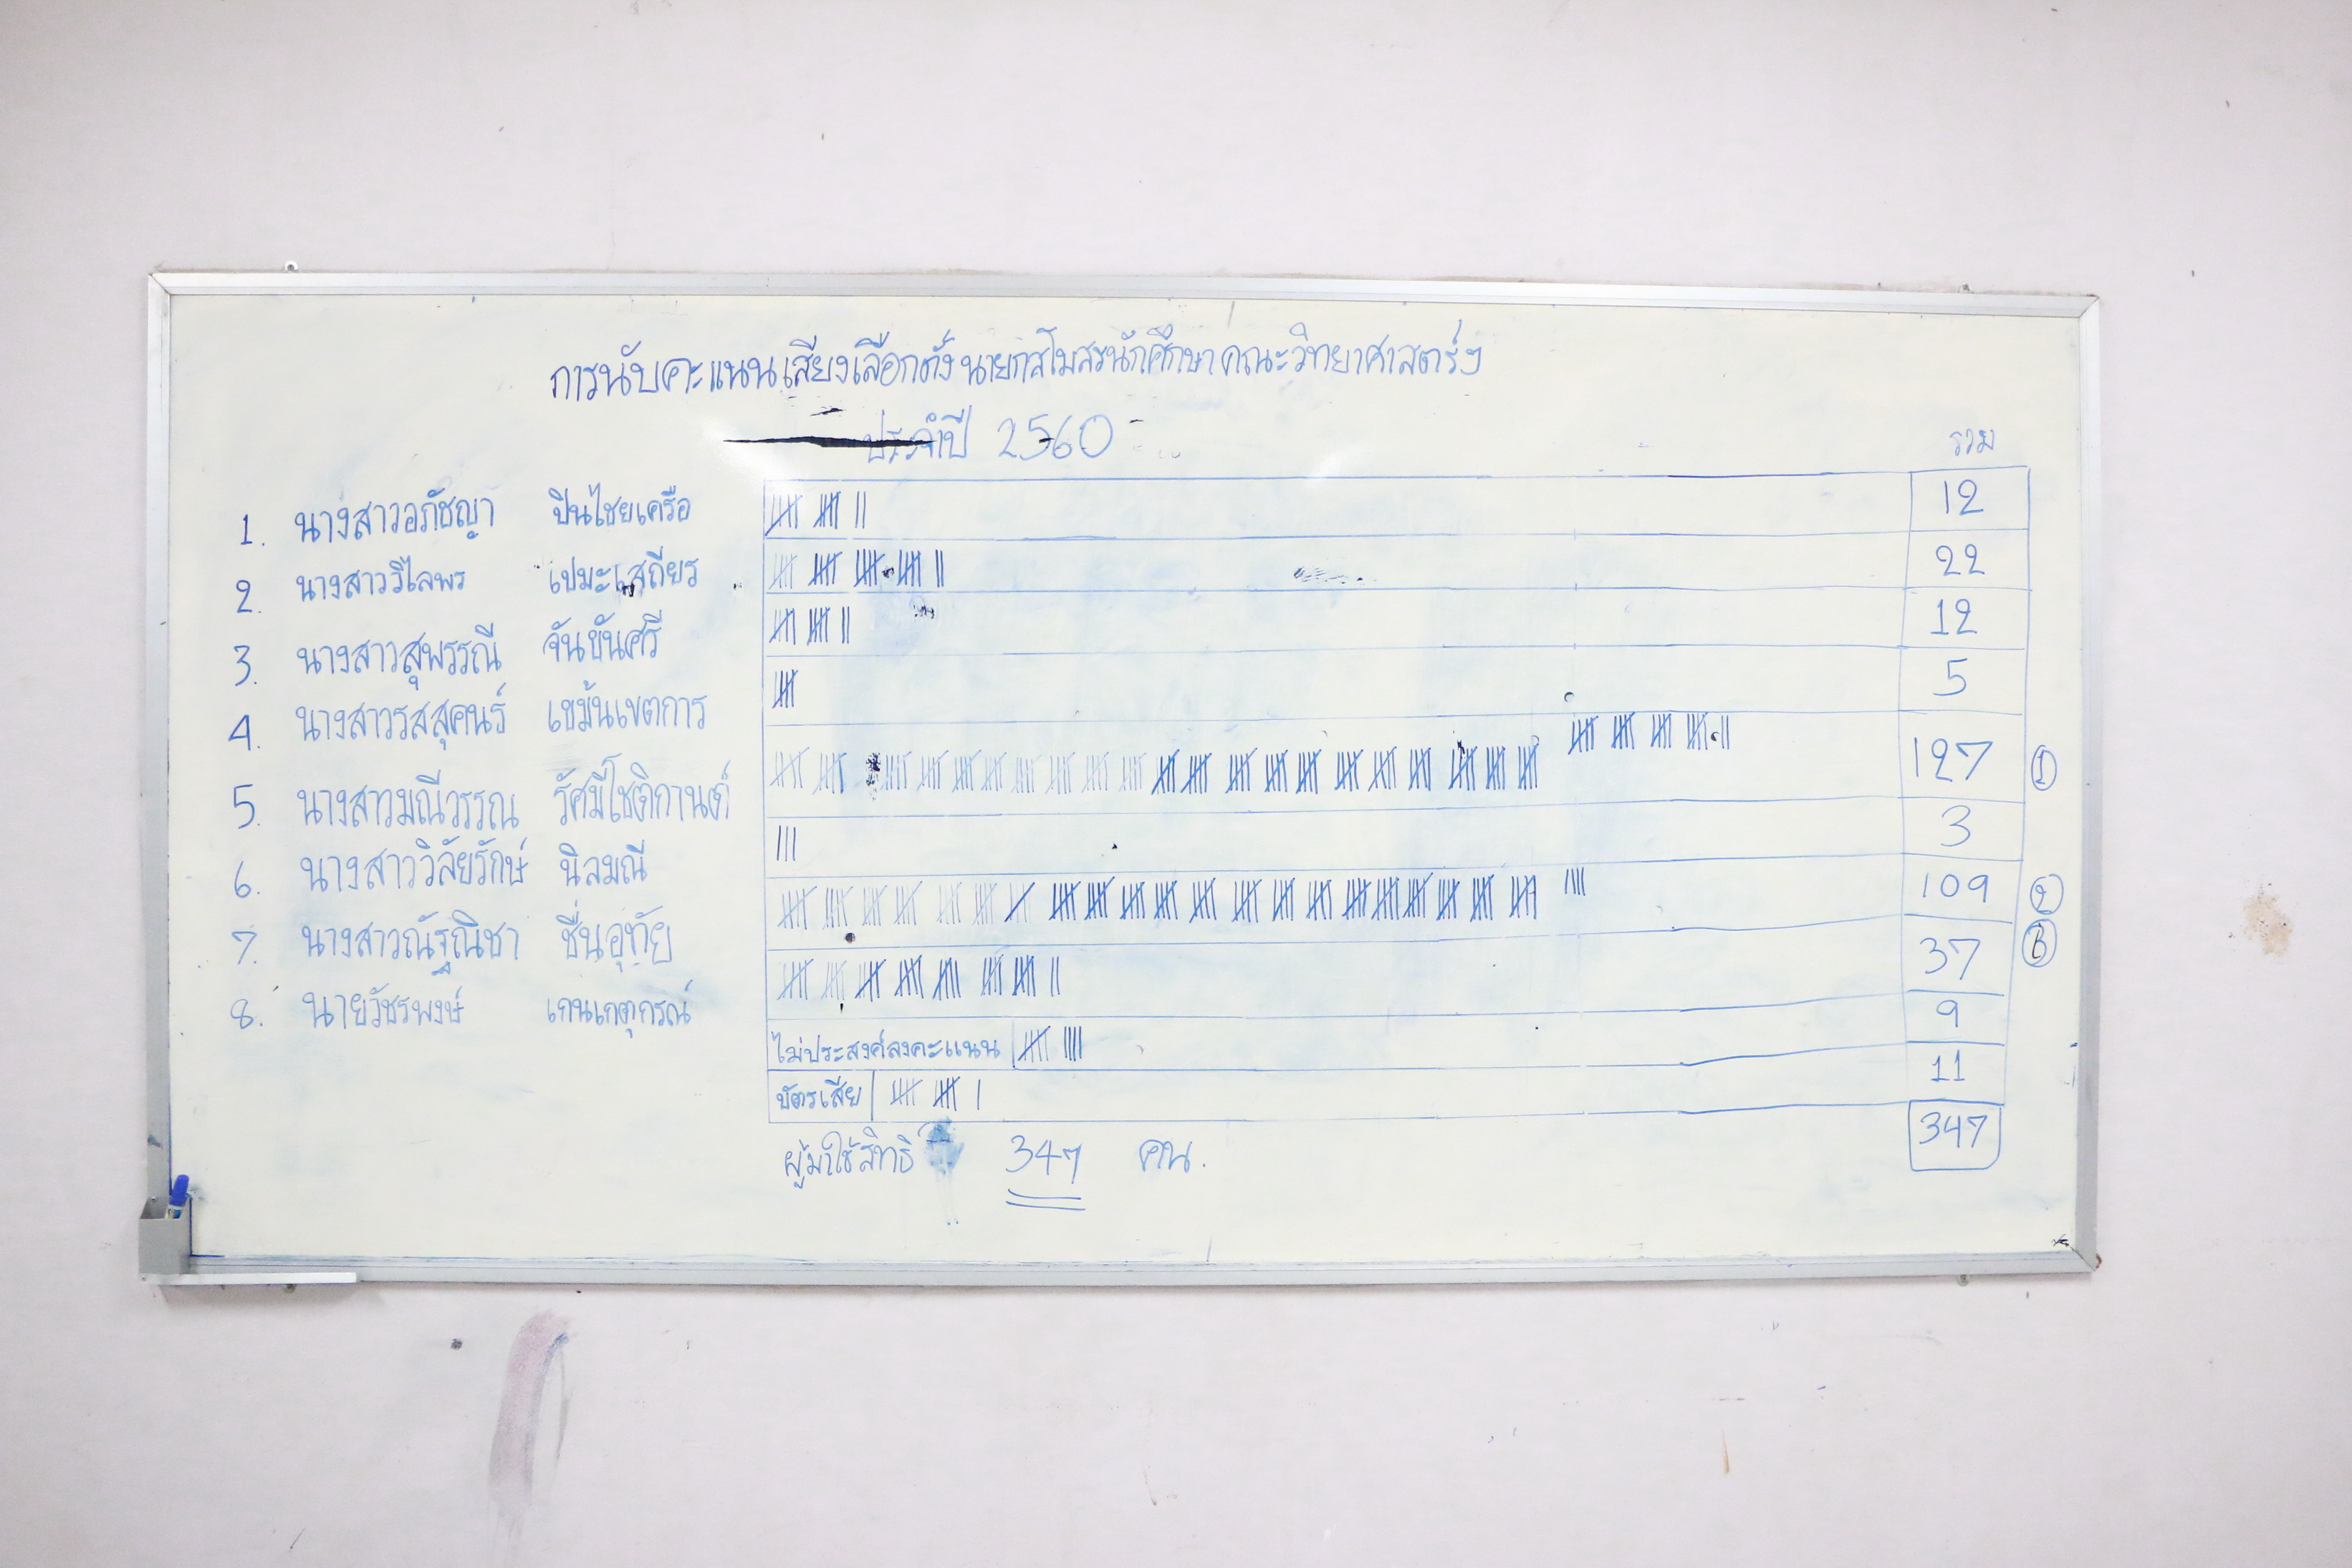 การนับคะแนนเสียงเลือกตั้งนายกสโมสรนักศึกษาคณะวิทยาศาสตร์ฯ
ประจำปี 2560
รวม
1. นางสาวอภัชญา ปินไชยเครือ 12
2. นางสาววิไลพร เปมะเสถียร 22
3. นางสาวสุพรรณี จันขันศรี 12
4. นางสาวรสสุคนธ์ เขม้นเขตการ 5
5. นางสาวมณีวรรณ รัศมีโชติกานต์ 127 1
6. นางสาววิลัยรักษ์ นิลมณี 3
7. นางสาวณัฐณิชา ชื่นอุทัย 109 2
8. นายวัชรพงษ์ เกนเกตุกรณ์ 37 3
ไม่ประสงค์ลงคะแนน 9
บัตรเสีย 11
ผู้มาใช้สิทธิ 347 คน. 347